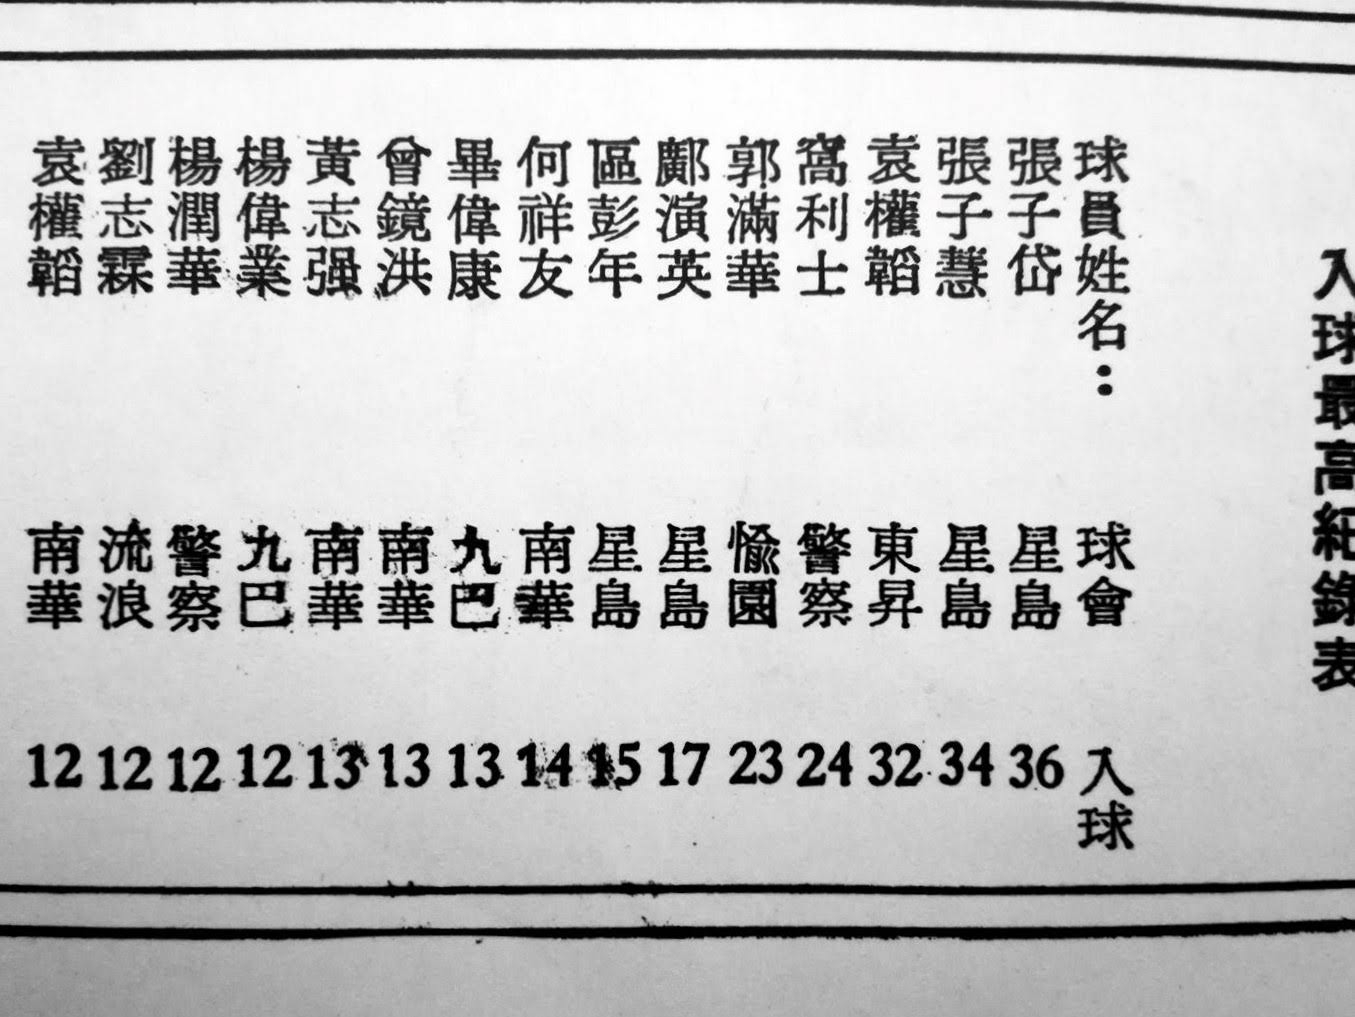 入球最高紀錄表
球員姓名： 球會 入球
張子岱 星島 36
張子慧 星島 34
袁權韜 東昇 32
窩利士 警察 24
郭滿華 愉園 23
鄺演英 星島 17
區彭年 星島 15
何祥友 南華 14
畢偉康 九巴 13
曾鏡洪 南華 13
黃志强 南華 13
楊偉業 九巴 12
楊潤華 警察 12
劉志霖 流浪 12
袁權韜 南華 12